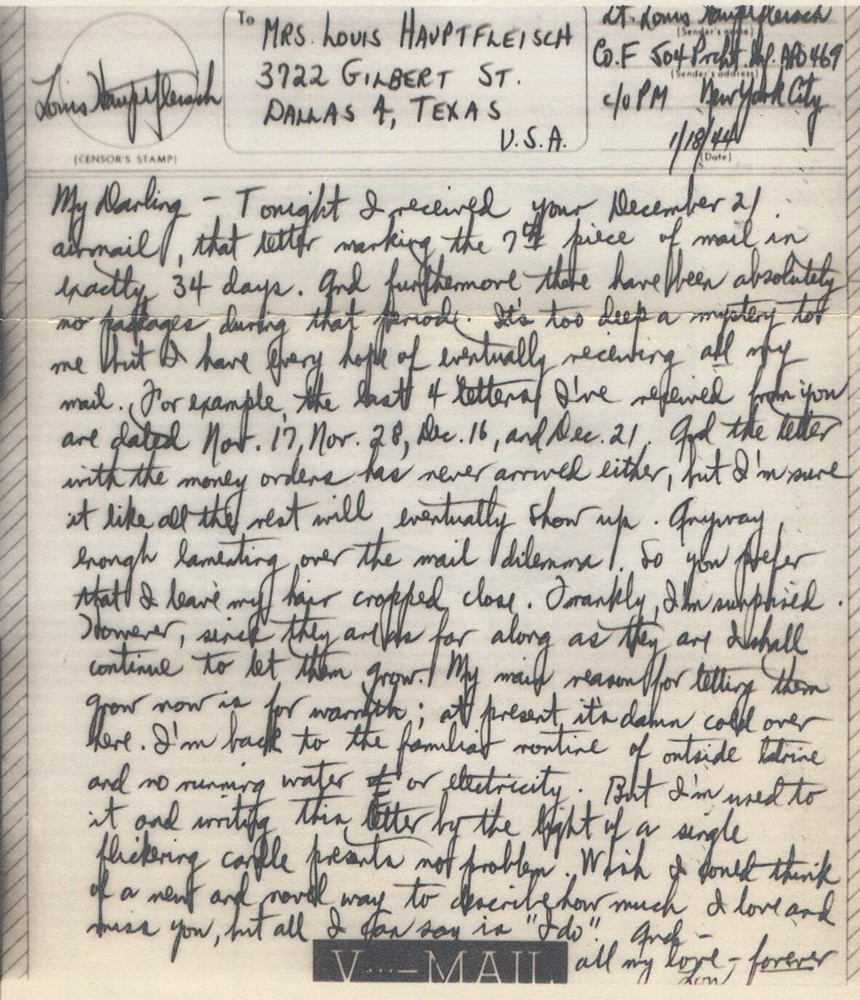 To
MRS. LOUIS HAUPTFLEISCH
3722 GILBERT ST.
DALLAS 4, TEXAS
U.S.A.
Louis Hauptfleisch
(CENSOR'S STAMP)
Lt. Louis Hauptfleisch
(Sender's name)
Co. F 504 Prcht. Inf. APO 469
(Sender's address)
c/o PM New York City
1/18/44
(Date)
My Darling - Tonight I received your December 21
airmail, that letter marking the 7th piece of mail in
exactly 34 days. And furthermore there have been absolutely
no packages during that period. It's too deep a mystery for
me but I have every hope of eventually receiving all my
mail. For example, the last 4 letters I've received from you
are dated Nov. 17, Nov. 28, Dec. 16, and Dec. 21. And the letter
with the money orders has never arrived either, but I'm sure
it like all the rest will eventually show up. Anyway
enough lamenting over the mail dilemma. So you prefer
that I leave my hair cropped close. Frankly, I'm surprised.
However, since they are as far along as they are I shall
continue to let them grow. My main reason for letting them
grow now is for warmth; at present it's damn cold over
here. I'm back to the familiar routine of outside latrine
and no running water or electricity. But I'm used to
it and writing this letter by the light of a single
flickering candle presents no problem. Wish I could think
of a new and novel way to describe how much I love and
miss you, but all I can say is "I do". And -
all my love - forever
Lou
V···—MAIL